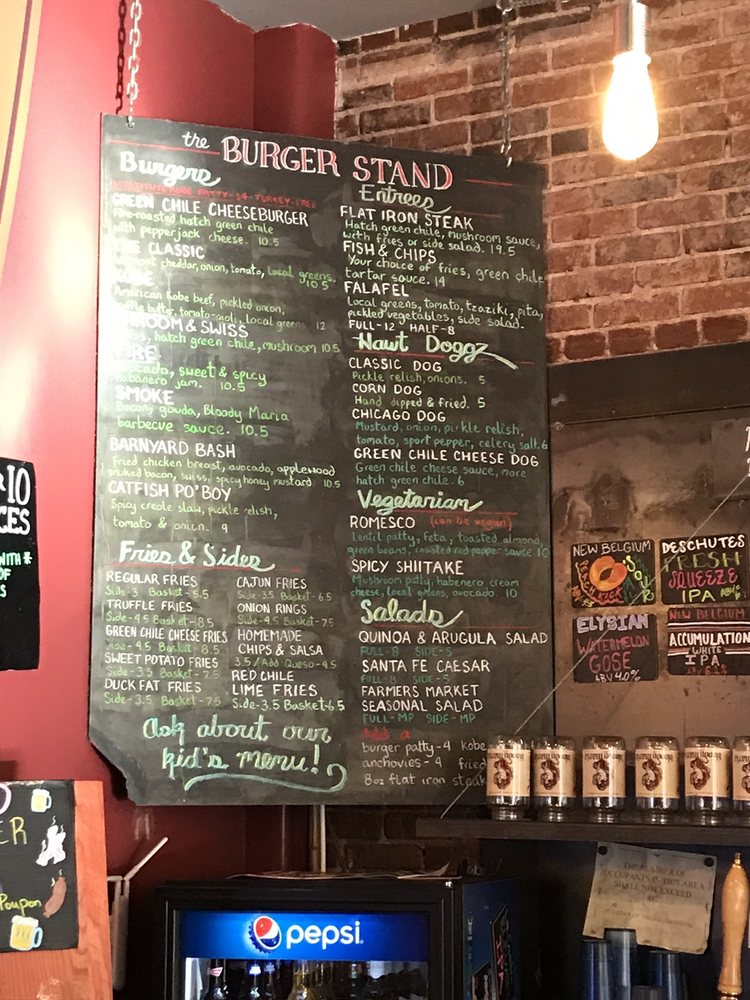 the BURGER STAND
Burgers
KOBE PATTY-$4-TURKEY-FREE
GREEN CHILE CHEESEBURGER
Fire-roasted hatch green chile
with pepperjack cheese. 10.5
CLASSIC
cheddar, onion, tomato, local greens.
10.5
American Kobe beef, pickled onion,
butter, tomato-aioli, local greens 12
& SWISS
hatch green chile, mushroom 10.5
FIRE
Avocado, sweet & spicy
habanero jam. 10.5
SMOKE
Bacon, gouda, Bloody Maria
barbecue sauce. 10.5
BARNYARD BASH
Fried chicken breast, avocado, applewood
smoked bacon, swiss, spicy honey mustard 10.5
CATFISH PO'BOY
Spicy creole slaw, pickle relish,
tomato & onion. 9
Fries & Sides
REGULAR FRIES
Side-3 Basket-5.5
TRUFFLE FRIES
Side-4.5 Basket-8.5
GREEN CHILE CHEESE FRIES
Side-4.5 Basket-8.5
SWEET POTATO FRIES
Side-3.5 Basket-7.5
DUCK FAT FRIES
Side-3.5 Basket-7.5
CAJUN FRIES
Side-3.5 Basket-6.5
ONION RINGS
Side-4.5 Basket-7.5
HOMEMADE
CHIPS & SALSA
3.5/Add Queso-4.5
RED CHILE
LIME FRIES
Side-3.5 Basket-6.5
Ask about our
kid's menu!
Entrees
FLAT IRON STEAK
Hatch green chile, mushroom sauce,
with fries or side salad. 19.5
FISH & CHIPS
Your choice of fries, green chile
tartar sauce. 14
FALAFEL
Local greens, tomato, tzaziki, pita,
pickled vegetables, side salad.
FULL-12 HALF-8
Hawt Doggz
CLASSIC DOG
Pickle relish, onions. 5
CORN DOG
Hand dipped & fried. 5
CHICAGO DOG
Mustard, onion, pickle relish,
tomato, sport pepper, celery salt. 6
GREEN CHILE CHEESE DOG
Green chile cheese sauce, more
hatch green chile. 6
Vegetarian
ROMESCO (can be vegan)
Lentil patty, feta, toasted almond,
green beans, roasted red pepper sauce 10
SPICY SHIITAKE
Mushroom patty, habenero cream
cheese, local greens, avocado. 10
Salads
QUINOA & ARUGULA SALAD
FULL-8 SIDE-5
SANTA FE CAESAR
FULL-8 SIDE-5
FARMERS MARKET
SEASONAL SALAD
FULL-MP SIDE-MP
Add a
burger patty-4 kobe
anchovies-4 fried
8oz flat iron steak
10
CES
WITH *
OF
NEW BELGIUM
PEACH KICK
SOUR
DESCHUTES
FRESH
SQUEEZE
IPA
ELYSIAN
WATERMELON
GOSE
ABV 4.0%
NEW BELGIUM
ACCUMULATION
WHITE
IPA
ER
Poupon
pepsi
THE NUMBER OF
OCCUPANTS IN THIS AREA
SHALL NOT EXCEED